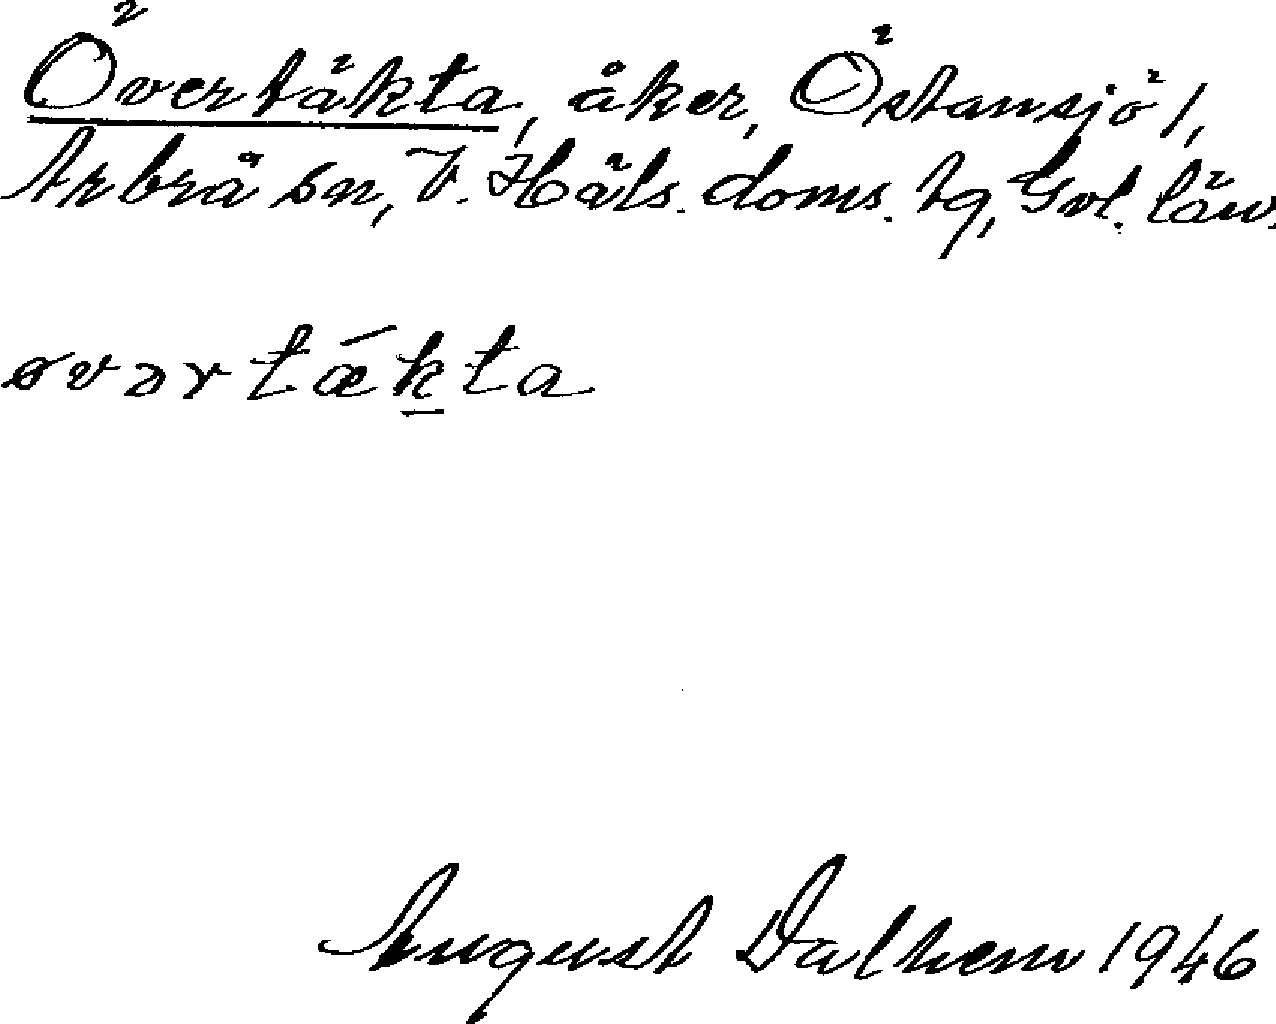 Övertäkta, åker, Östansjö 1,
Arbrå sn, V. Häls. doms. tg, Gvl. län.
øvərtǽkta
August Dalhem 1946